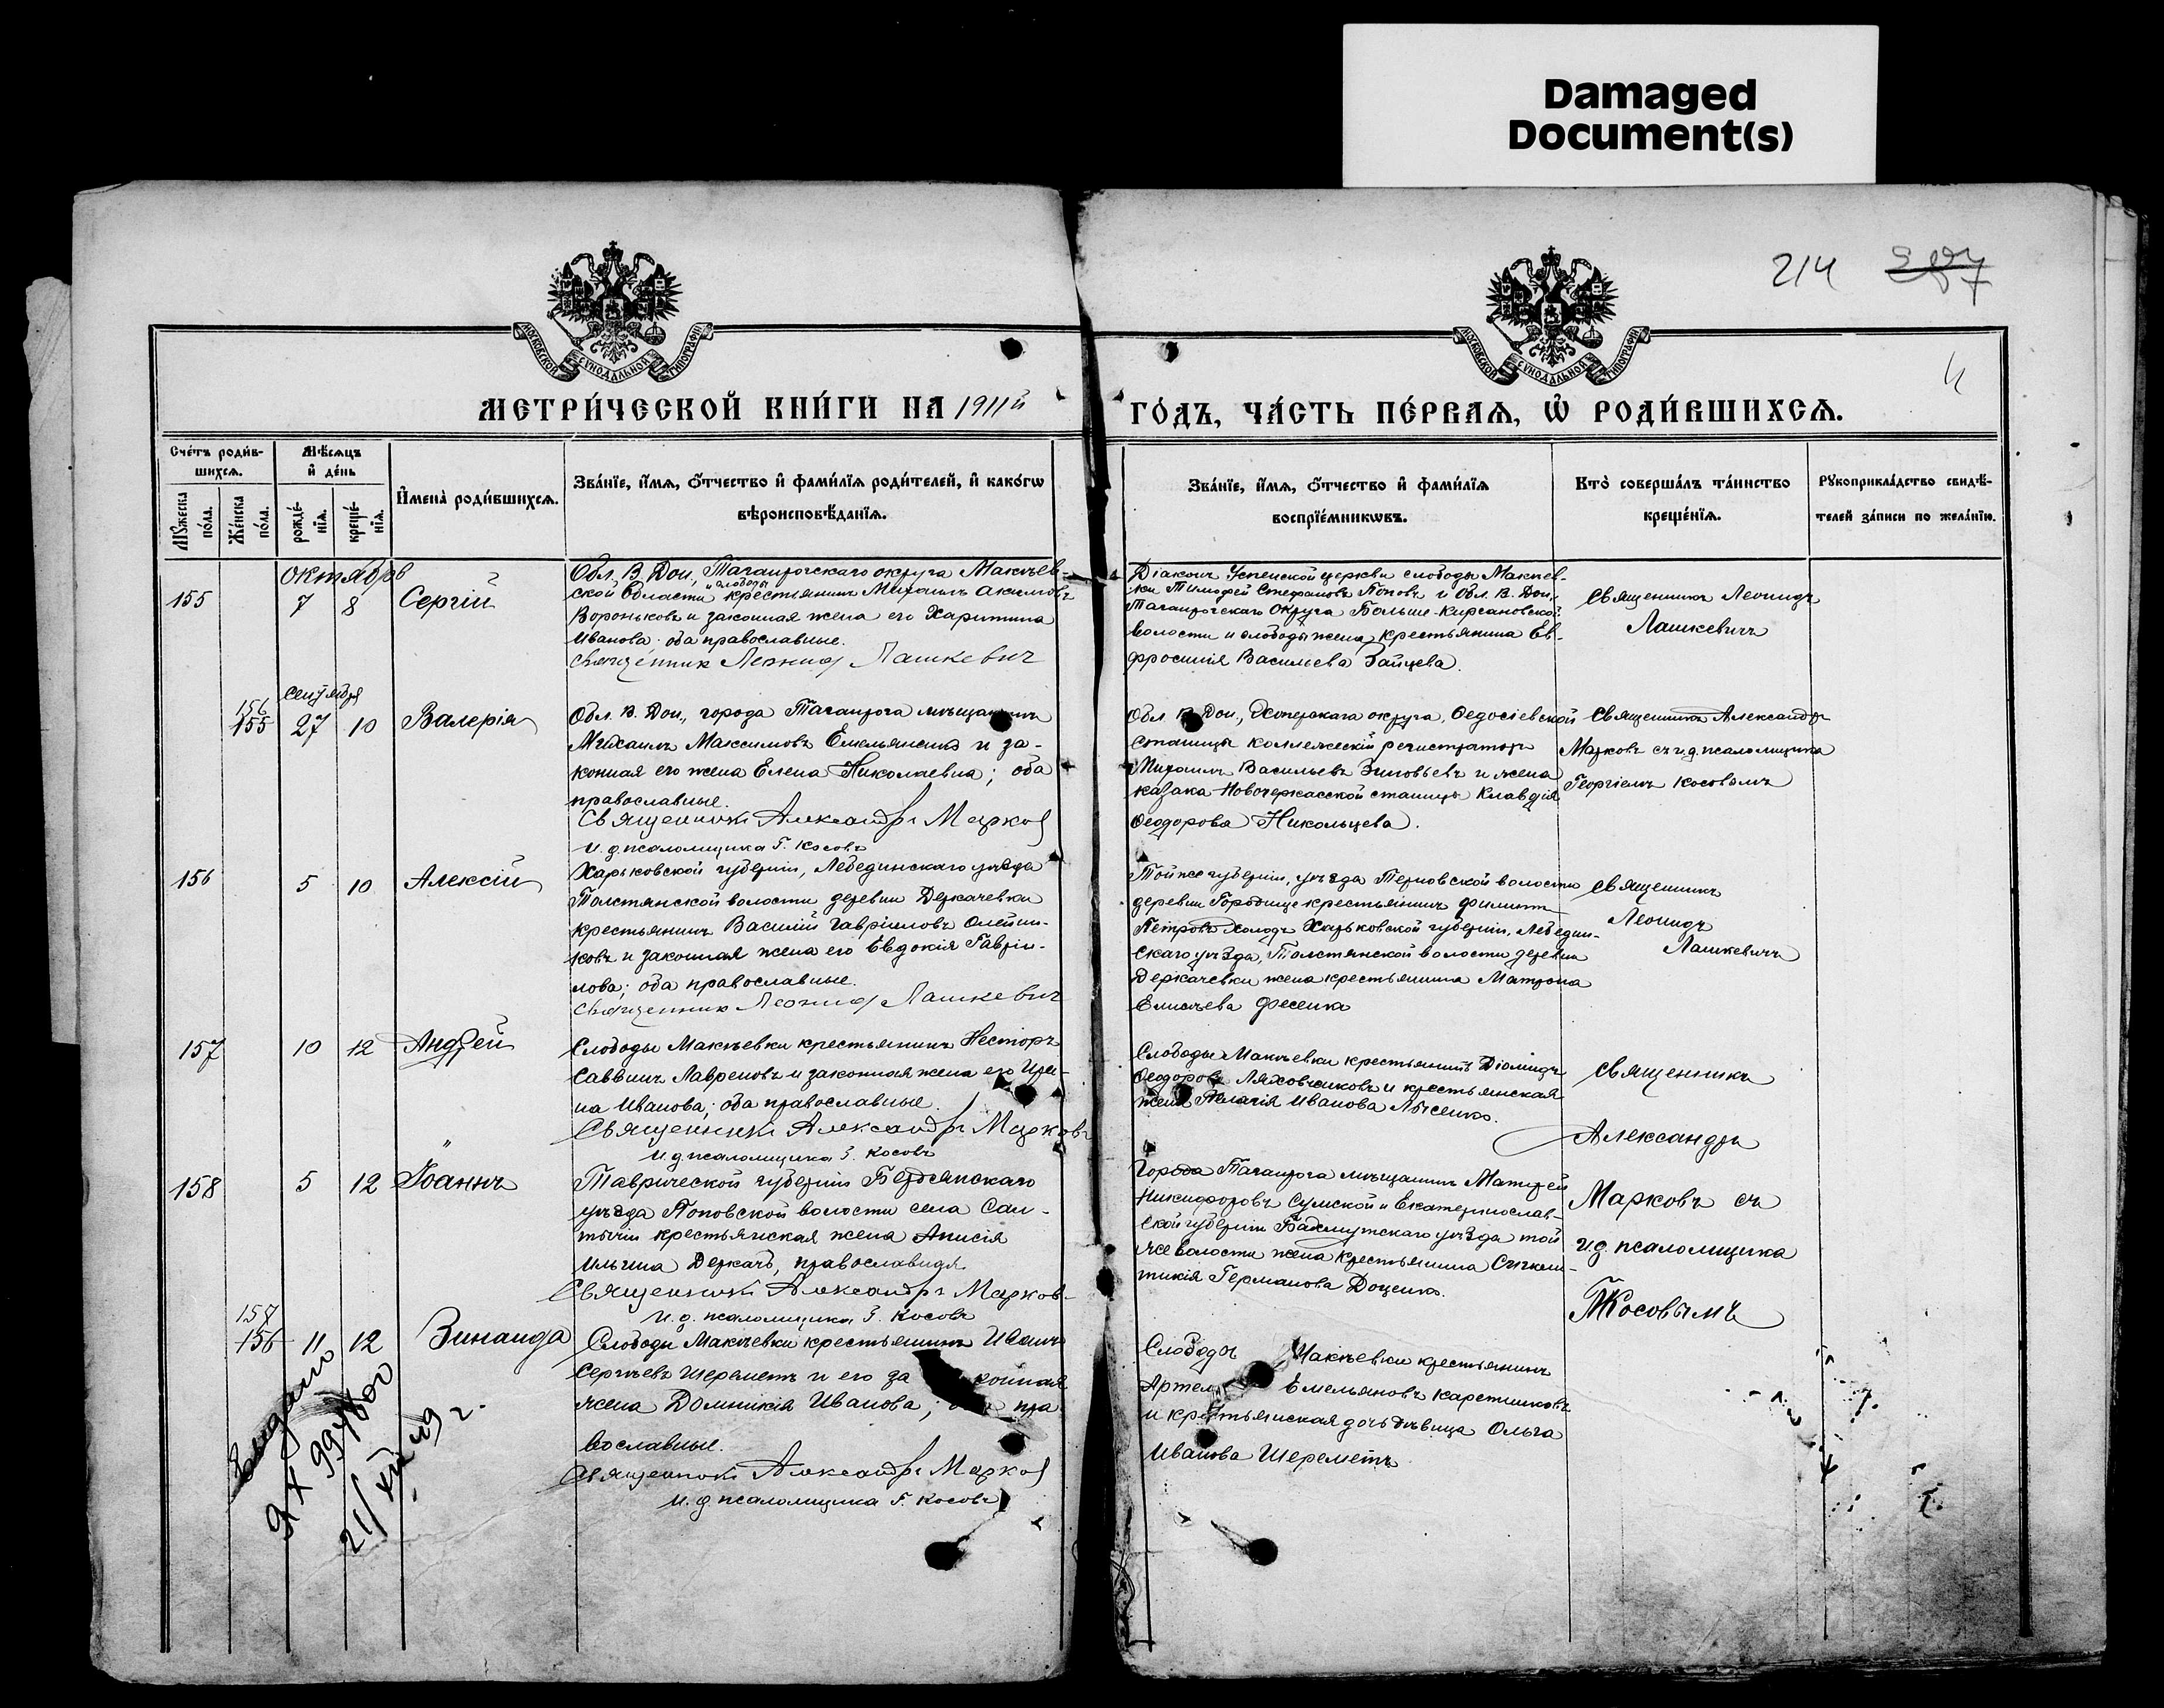 Damaged
Document(s)
214
МОСКОВСКОЙ СѴНОДАЛЬНОЙ ТИПОГРАФІИ
МОСКОВСКОЙ СѴНОДАЛЬНОЙ ТИПОГРАФІИ
МЕТРИ́ЧЕСКОЙ КНИ́ГИ НА 1911й
ГО́ДЪ, ЧА́СТЬ ПЕ́РВАѦ, Ѡ҆ РОДИ́ВШИХСѦ.
Сче́тъ роди́в-
шихсѧ.
Мꙋ́жеска по́ла.
Же́нска по́ла.
Мѣ́сѧцъ
и҆ де́нь
рожде́-нїѧ.
креще́-нїѧ.
И҆мена̀ роди́вшихсѧ.
Зва́нїе, и҆́мѧ, ѻ҆́тчество и҆ фами́лїѧ роди́телей, и҆ како́гѡ
вѣроисповѣ́данїѧ.
Зва́нїе, и҆́мѧ, ѻ҆́тчество и҆ фами́лїѧ
воспрїе́мникѡвъ.
Кто̀ соверша́лъ та́инство
креще́нїѧ.
Рꙋкоприкла́дство свидѣ́-
телей за́писи по жела́нїю.
октября
155
7
8
Сергій
Обл. В. Дон., Таганрогскаго округа Макѣев-
ской волости и слободы крестьянинъ Михаилъ Акимовъ
Вороньковъ и законная жена его Харитина
Иванова; оба православные.
Священник Леонид Лашкевич
Діаконъ Успенской церкви слободы Макѣев-
ки Тимофей Стефановъ Поповъ и Обл. В. Дон.,
Таганрогскаго Округа Больше-Кирсановской
волости и слободы жена крестьянина Ев-
фросинія Васильева Зайцева.
Священникъ Леонидъ
Лашкевичъ
сентября
156
155
27
10
Валерія
Обл. В. Дон., города Таганрога мѣщанинъ
Михаилъ Максимовъ Емельяненко и за-
конная его жена Елена Николаевна; оба
православные.
Священникъ Александръ Марков
И. д. псаломщика Г. Косовъ
Обл. В. Дон., Хоперскаго округа, Ѳедосіевской
станицы коллежскій регистраторъ
Михаилъ Васильевъ Зиновьевъ и жена
казака Новочеркасской станицы Клавдія
Ѳеодорова Никольцева.
Священникъ Александръ
Марковъ съ и.д. псаломщика
Георгіемъ Косовымъ
156
5
10
Алексій
Харьковской губерніи, Лебединскаго уѣзда
Толстянской волости деревни Деркачевки
крестьянинъ Василій Гавріиловъ Олейни-
ковъ и законная жена его Евдокія Гавріи-
лова; оба православные.
Священник Леонид Лашкевич
Той же губерніи, уѣзда Терновской волости
деревни Городище крестьянинъ Филиппъ
Петровъ Холодъ Харьковской губерніи, Лебедин-
скаго уѣзда, Толстянской волости деревни
Деркачевки жена крестьянина Матрона
Елисѣева Фесенка
Священникъ
Леонидъ
Лашкевичъ
157
10
12
Андрей
Слободы Макѣевки крестьянинъ Несторъ
Саввинъ Лавреновъ и законная жена его Ири-
на Иванова; оба православные.
Священникъ Александръ Марковъ
И. д. псаломщика Г. Косовъ
Слободы Макѣевки крестьянинъ Діомидъ
Ѳеодоровъ Ляховчиковъ и крестьянская
жена Пелагія Иванова Лысенко.
Священникъ
Александръ
Марковъ съ
и.д. псаломщика
Г. Косовымъ
158
5
12
Іоаннъ
Таврической губерніи Бердянскаго
уѣзда Поповской волости села Сал-
тычіи крестьянская жена Анисія
Ильина Деркачъ, православная
Священникъ Александръ Марков
И. д. псаломщика Г. Косовъ
Города Таганрога мѣщанинъ Матѳей
Никифоровъ Сумской и Екатеринослав-
ской губерніи Бахмутскаго уѣзда той
же волости жена крестьянина
Германова Доценко.
157
156
11
12
Зинаида
Слободы Макѣевки крестьянинъ Иванъ
Сергѣевъ Шереметъ и его за конная
жена Домникія Иванова; пра
вославные.
Священникъ Александръ Марков
И. д. псаломщика Г. Косовъ
Слободы Макѣевки крестьянинъ
Артем Емельяновъ Каретниковъ
и крестьянская дочь дѣвица Ольга
Иванова Шереметъ.
Выдано
21/XII 49 г.